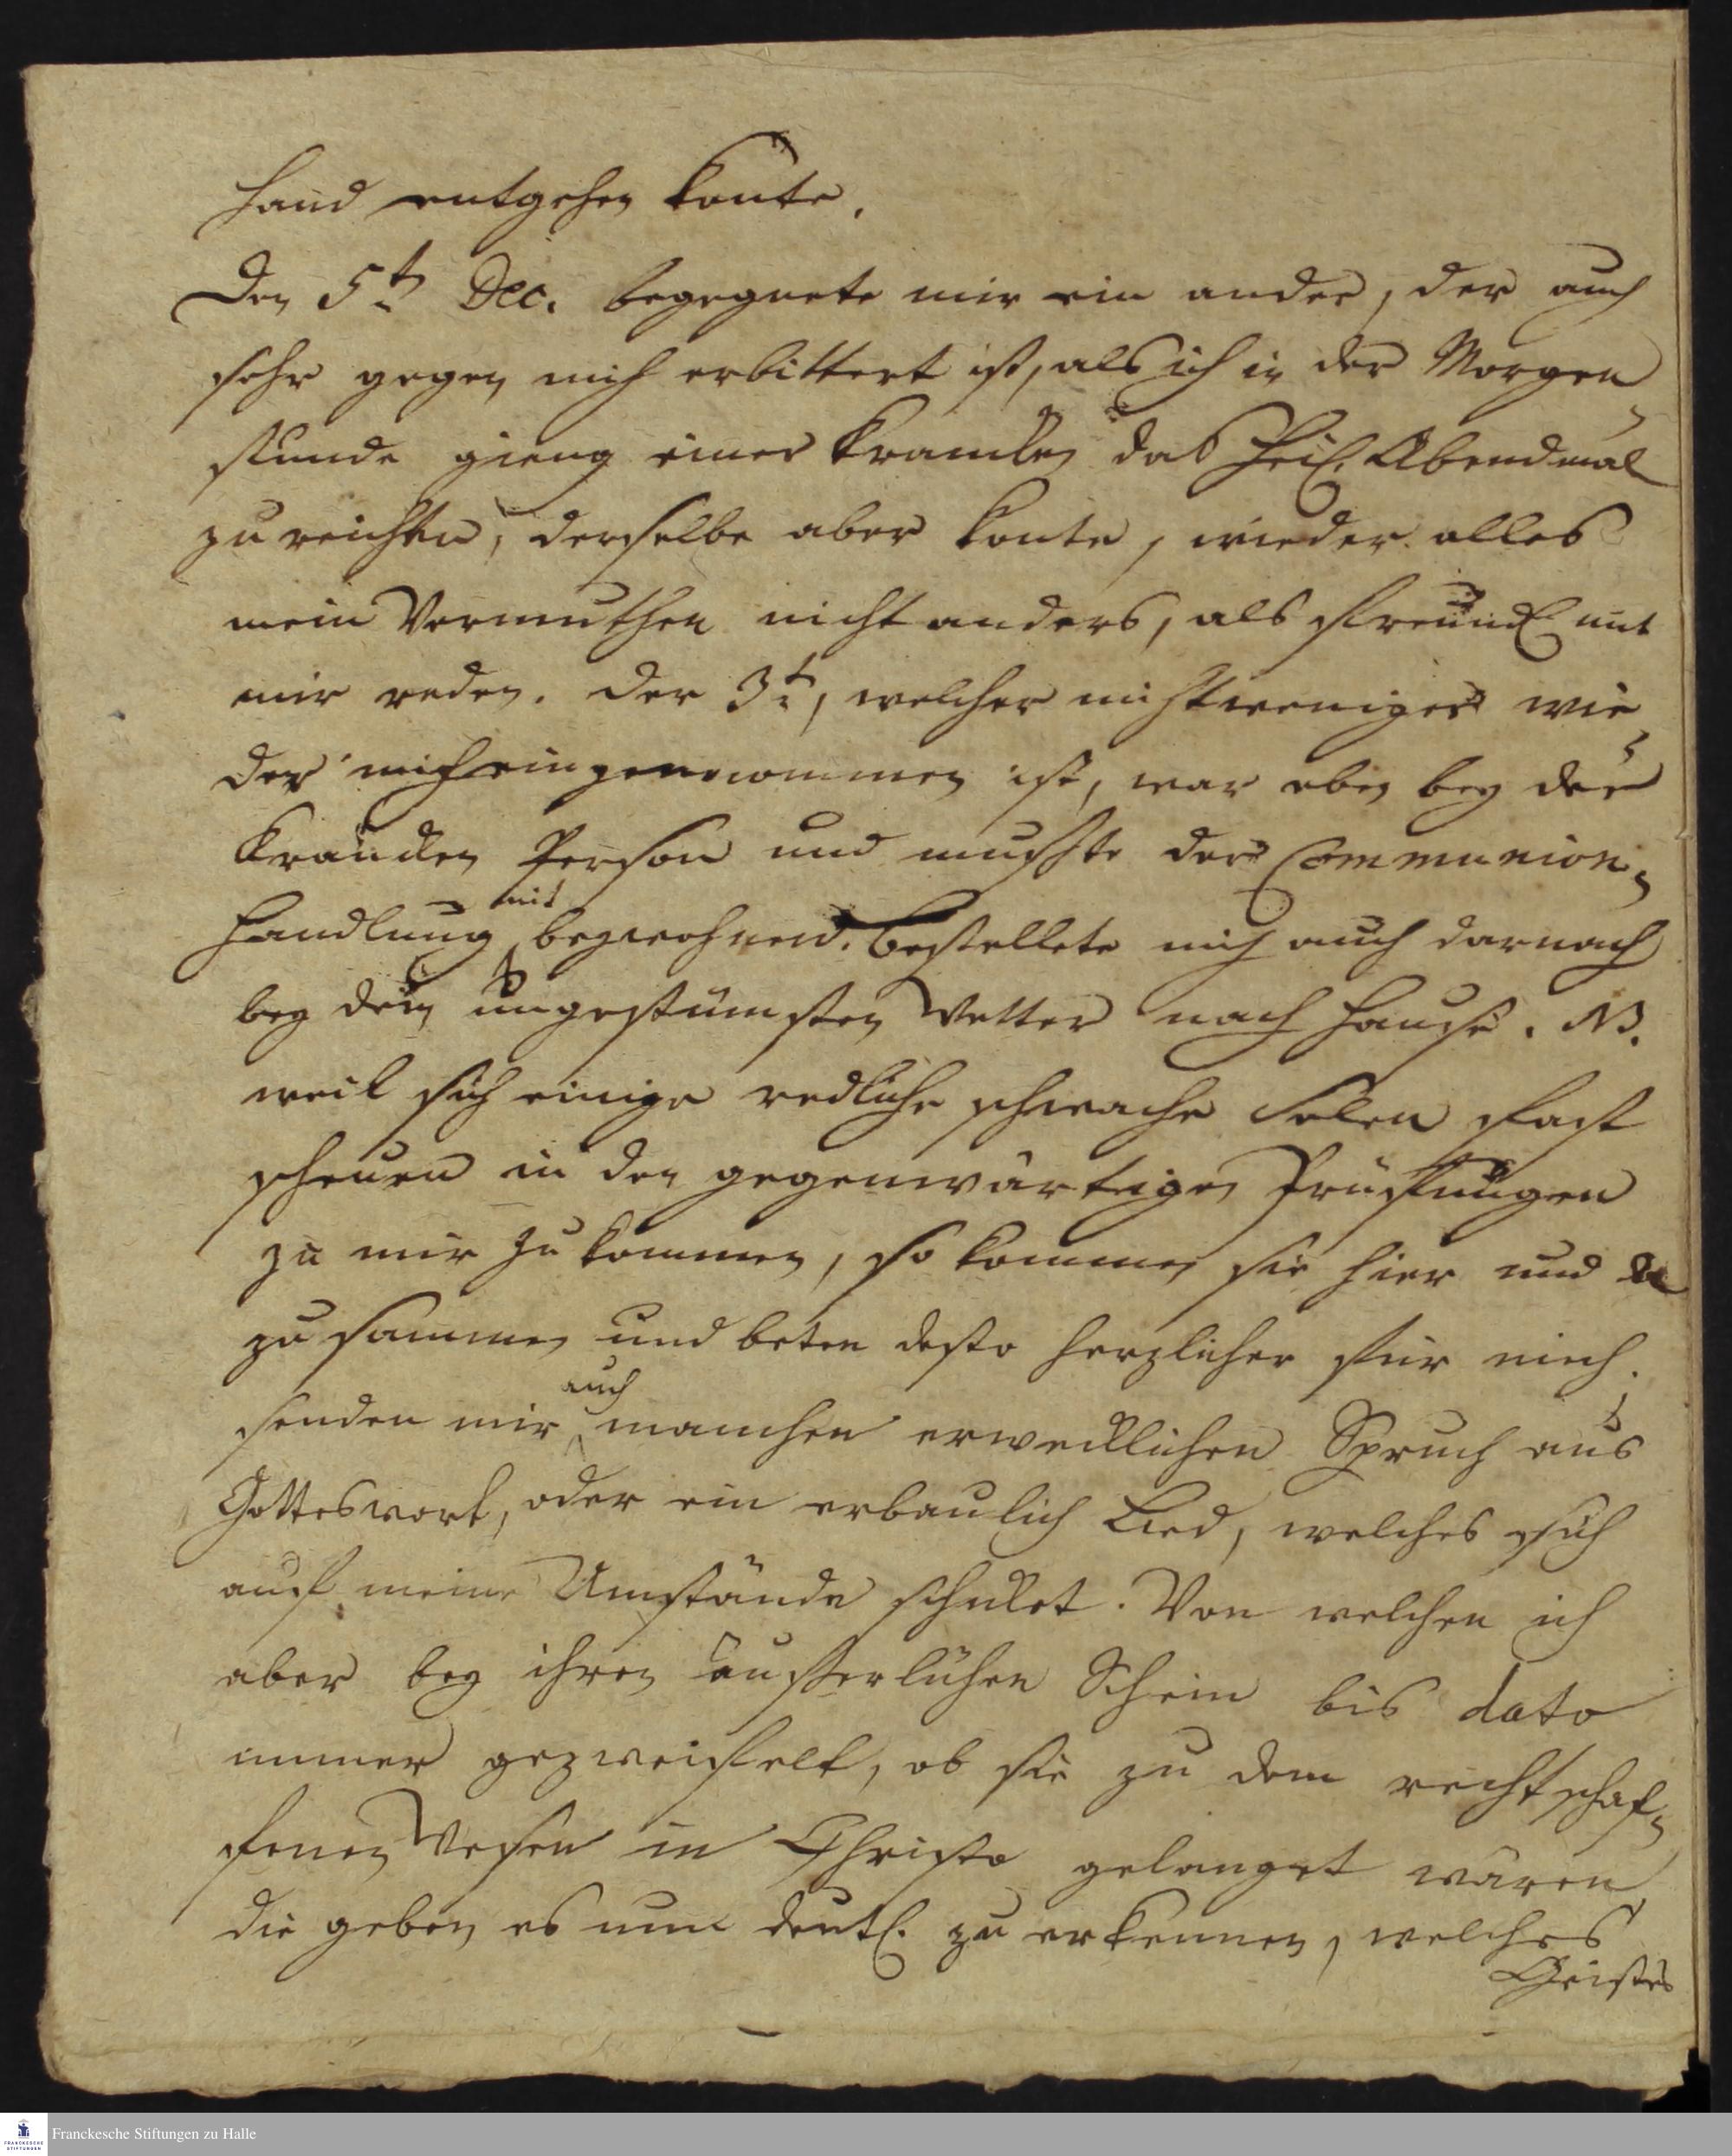 Hand entgehen konte.
Den 5t. Dec. begegnete mir ein ander, der auch
sehr gegen mich erbittert ist, als ich in der Morgen
stunde gieng einer Krancken das Heil. Abendmal
zu reichen, derselbe aber konte, wieder alles
mein Vermuthen nicht anders, als freundl. mit
mir reden. der 3t., welcher nicht weniger wie
der mich eingenommen ist, war eben bey der
krancken Person und mußte der Communion-
Handlung mit beywohnen. Bestellete mich auch darnach
bey dem ungestümsten Wetter nach Hause. NB.
weil sich einige redliche schwache Selen fast
scheuen in den gegenwärtigen Prüfungen
zu mir zu kommen, so kommen sie hier und da
zusammen und beten desto herzlicher für mich.
senden mir auch manchen erwecklichen Spruch aus
Gottes wort, oder ein erbaulich Lied, welches sich
auf meine Umstände schicket. Von welchen ich
aber bey ihren äußerlichen Schein bis dato
immer gezweifelt, ob sie zu dem rechtschaf-
fenen Wesen in Christo gelanget wären
die geben es nun deutl. zu erkennen, welches
Geistes
Franckesche Stiftungen zu Halle
FRANCKESCHE
STIFTUNGEN